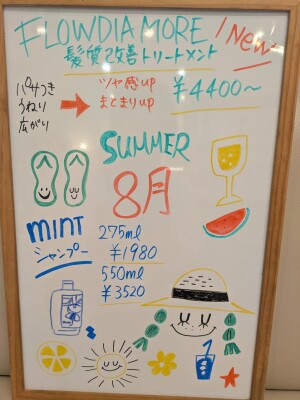 FLOWDIAMORE New
髪質改善トリートメント
パサつき
うねり
広がり
ツヤ感up
まとまりup
¥4400～
SUMMER
8月
mINT
シャンプー
275ml
¥1980
550ml
¥3520